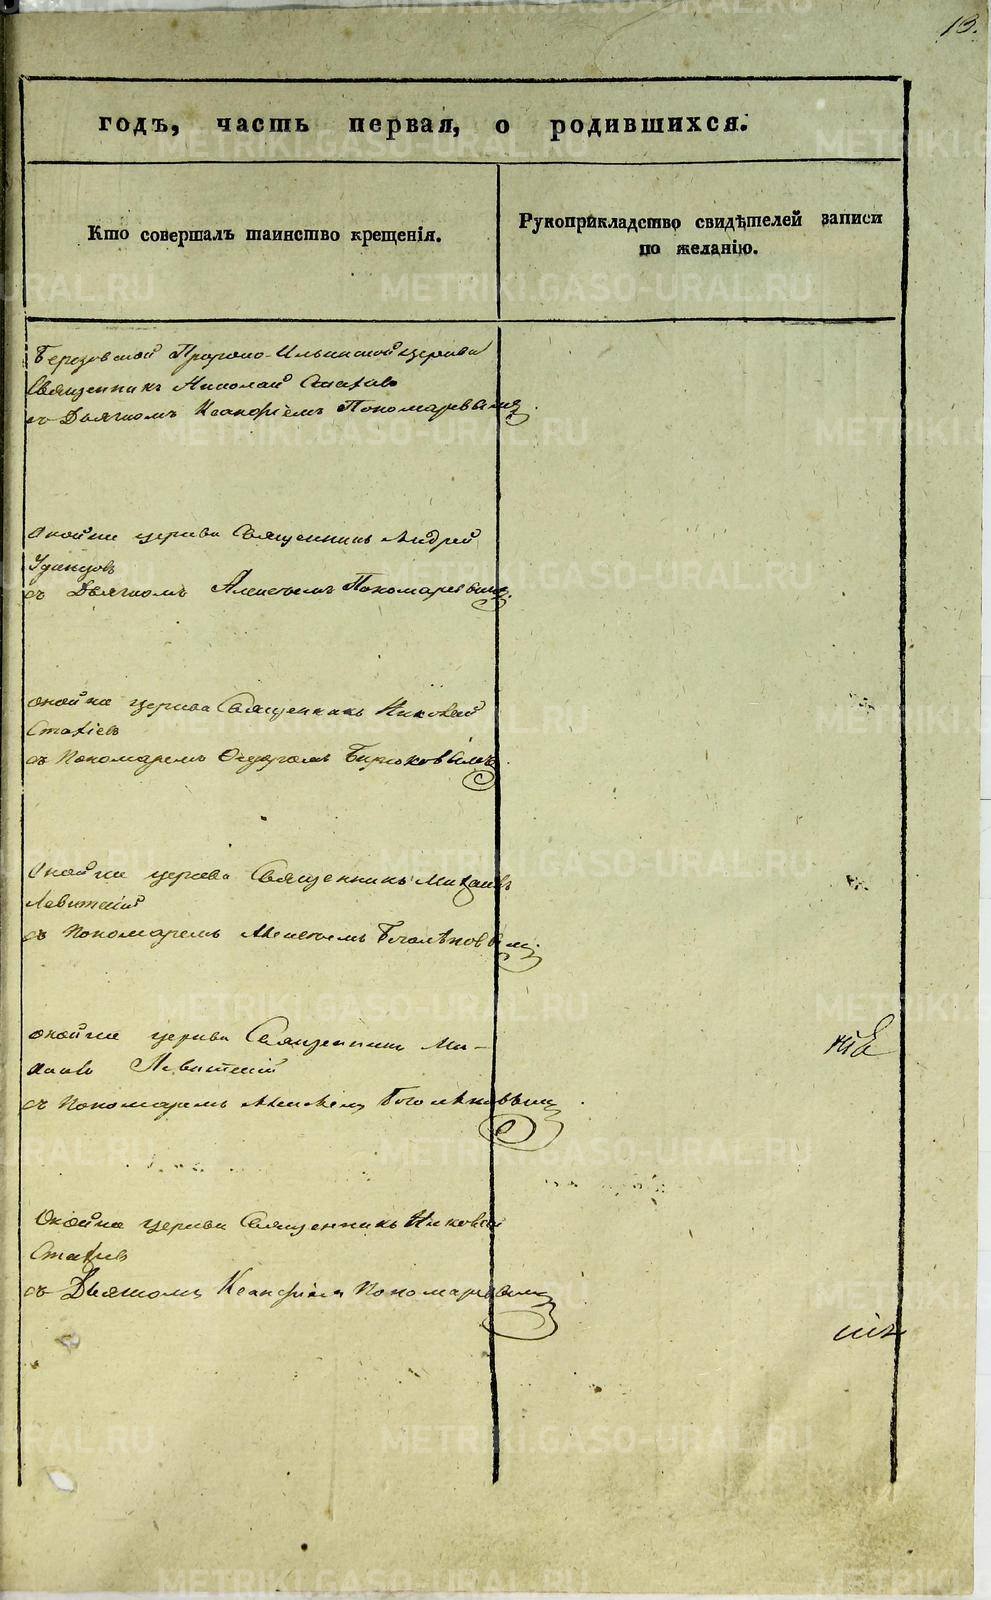 13.
годъ, часть первая, о родившихся.
Кто совершалъ таинство крещенія.
Рукоприкладство свидѣтелей записи
по желанію.
Березовской Пророко-Ильинской церкви
Священникъ Николай
съ Дьячкомъ Ксанфіемъ Пономаревымъ
церкви Священникъ Андрей
Удинцов
съ Дьячкомъ Алексѣемъ Пономаревымъ
церкви Священникъ Николай
Стахіев
съ Пономаремъ Федоромъ Бирюковымъ
церкви Священникъ Михаилъ
Левитскій
съ Пономаремъ Алексѣемъ Боголѣповымъ
церкви Священникъ Ми-
хаилъ Левитскій
съ Пономаремъ Алексѣемъ Боголѣповымъ
церкви Священникъ Николай
Стахіев
съ Дьячкомъ Ксанфіемъ Пономаревымъ
METRIKI.GASO-URAL.RU